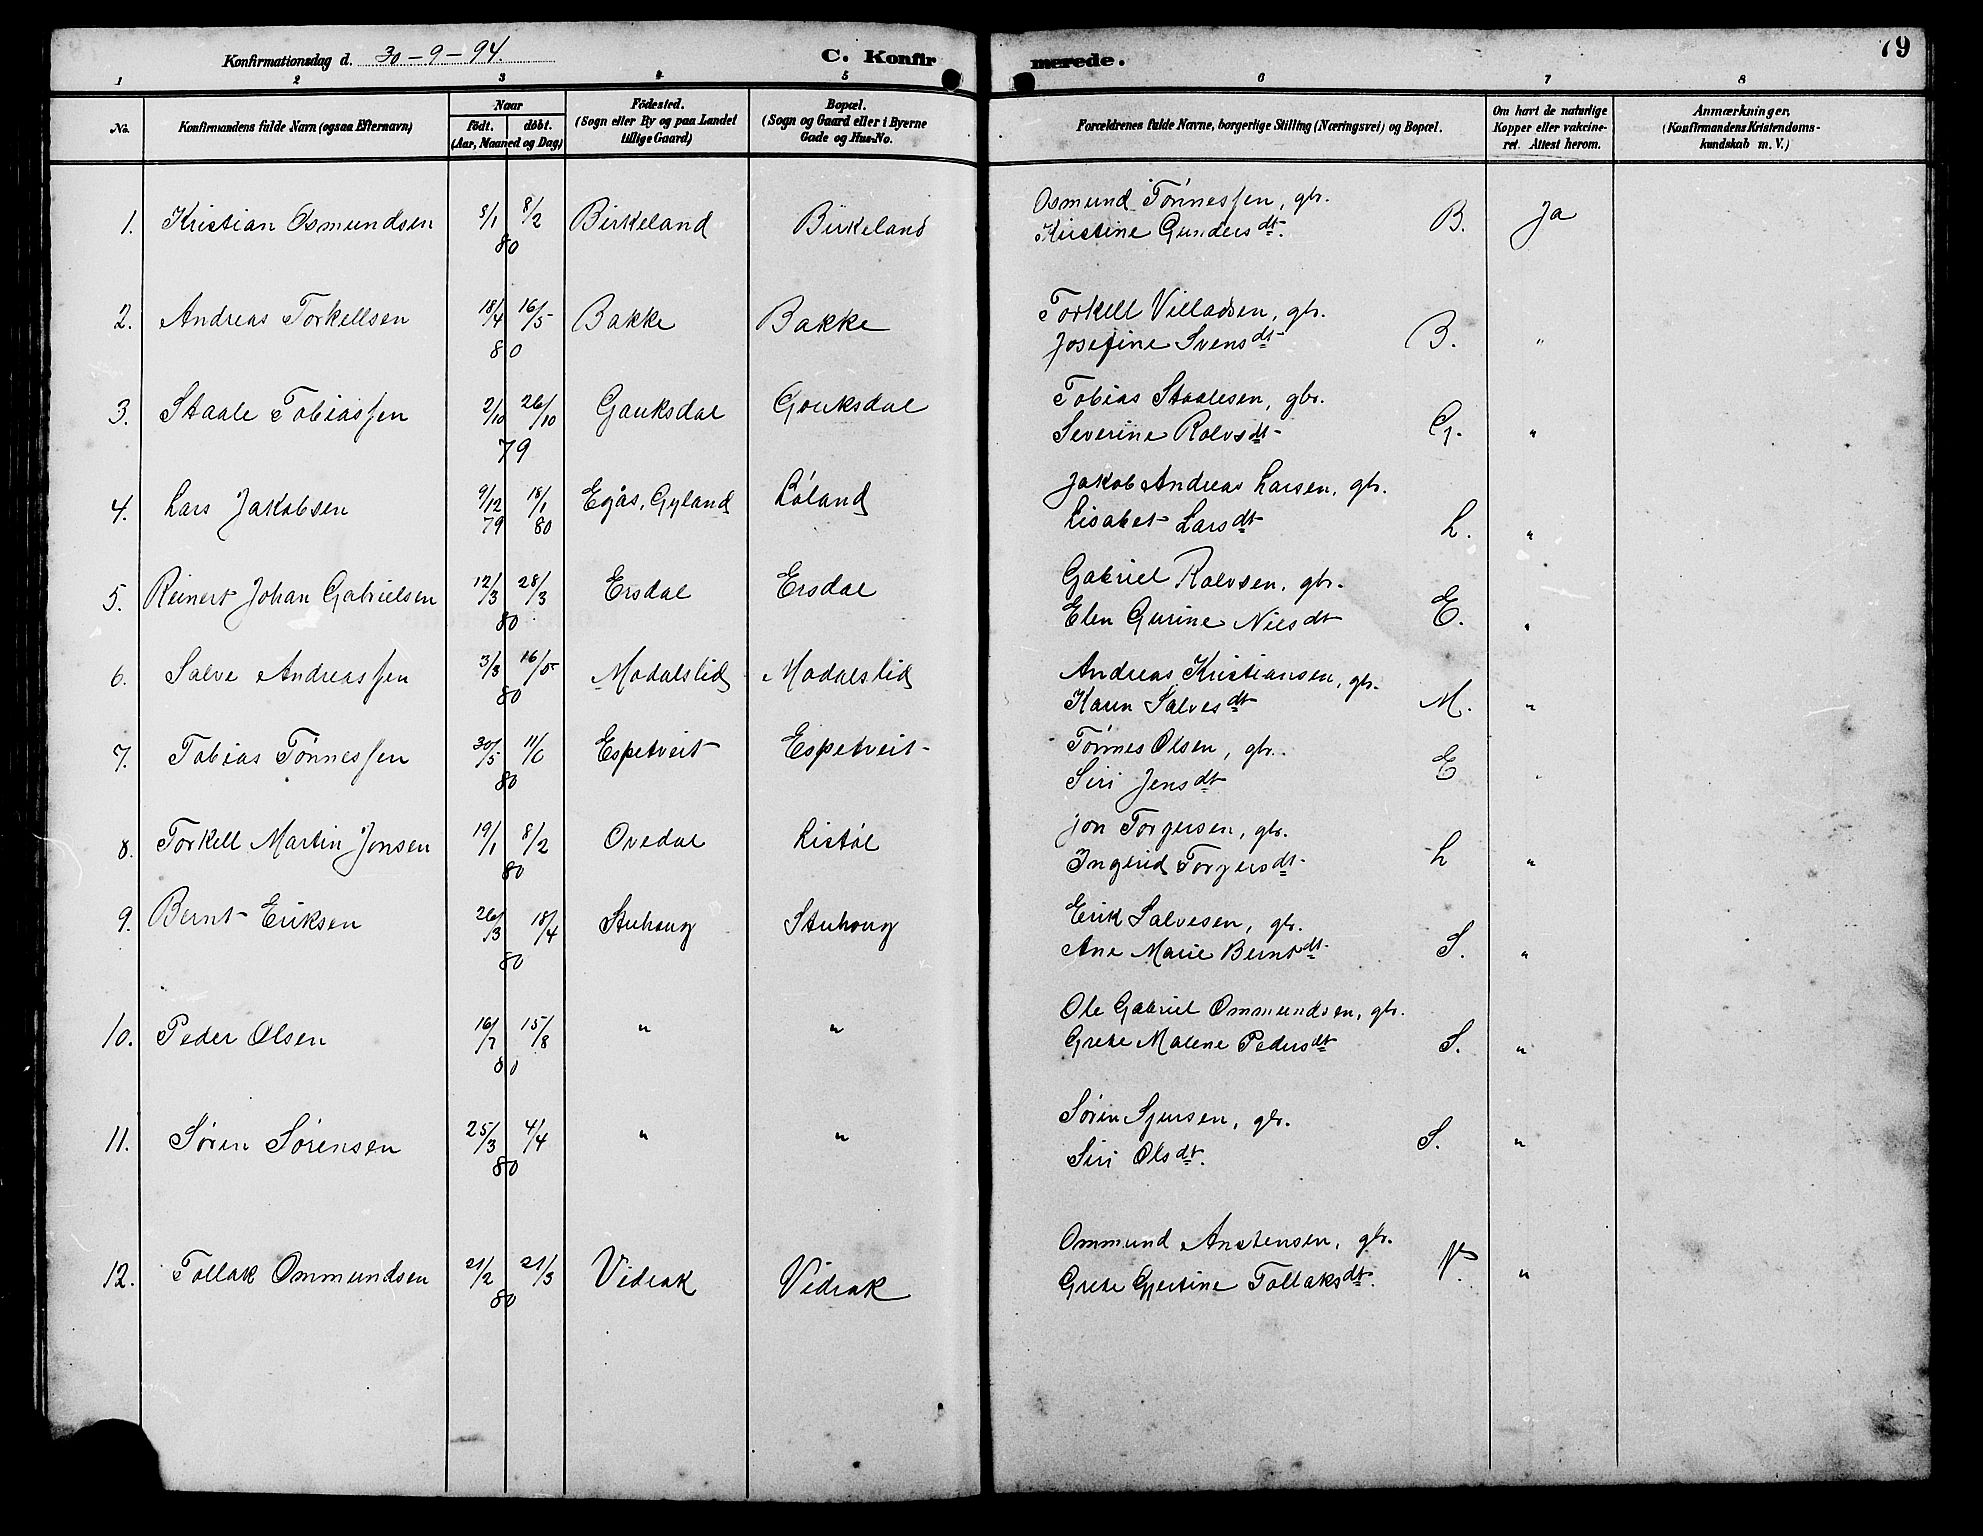 79
Konfirmationsdag d. 30-9-94. C. Konfirmerede.
1 2 3 4 5 6 7 8
No. Konfirmandens fulde Navn (ogsaa Efternavn) Naar födt. döbt. (Aar, Maaned og Dag) Födested. (Sogn eller By og paa Landet tillige Gaard) Bopæl. (Sogn og Gaard eller i Byerne Gade og Hus-No. Forældrenes fulde Navne, borgerlige Stilling (Næringsvei) og Bopæl. Om havt de naturlige Kopper eller vakcineret. Attest herom. Anmærkninger, (Konfirmandens Kristendomskundskab m. V.)
1. Kristian Osmundsen 8/1 8/2 80 Birkeland Birkeland Osmund Tønnesssen, gbr. B. Ja
Kristine Gundersdt.
2. Andreas Torkellsen 18/4 16/5 80 Bakke Bakke Torkell Villadsen, gbr. B. "
Josefine Svensdt
3. Staale Tobiassen 2/10 26/10 79 Gauksdal Gouksdal Tobias Staalesen, gbr. G. "
Severine Rolvsdt
4. Lars Jakobsen 9/12 79 18/1 80 Egås, Gyland Løland Jakob Andreas Larsen, gbr. L. "
Lisabet Larsdt
5. Reinert Johan Gabrielsen 12/3 28/3 80 Ersdal Ersdal Gabriel Rolvsen, gbr. E. "
Elen Gurine Nilsdt
6. Salve Andreassen 3/3 16/5 80 Modalslid Modalslid Andreas Kristiansen, gbr. M. "
Karen Salvesdt
7. Tobias Tønnessen 30/5 11/6 80 Espetveit Espetveit Tønnes Olsen, gbr. E "
Siri Jensdt
8. Torkell Martin Jonsen 19/1 8/2 80 Ovedal Listøl Jon Torgersen, gbr. L "
Ingerid Torgersdt
9. Bernt Eriksen 26/3 18/4 80 Stuhoug Stuhoug Erik Salvesen, gbr. S. "
Ane Marie Berntdt
10. Peder Olsen 16/7 15/8 80 " " Ole Gabriel Ommundsen, gbr. S. "
Grete Malene Pedersdt
11. Søren Sørensen 25/3 4/4 80 " " Søren Sjursen, gbr. S. "
Siri Olsdt.
12. Tollak Ommundsen 21/2 21/3 80 Vidrak Vidrak Ommund Anstensen, gbr. V. "
Grete Gjertine Tollaksdt.